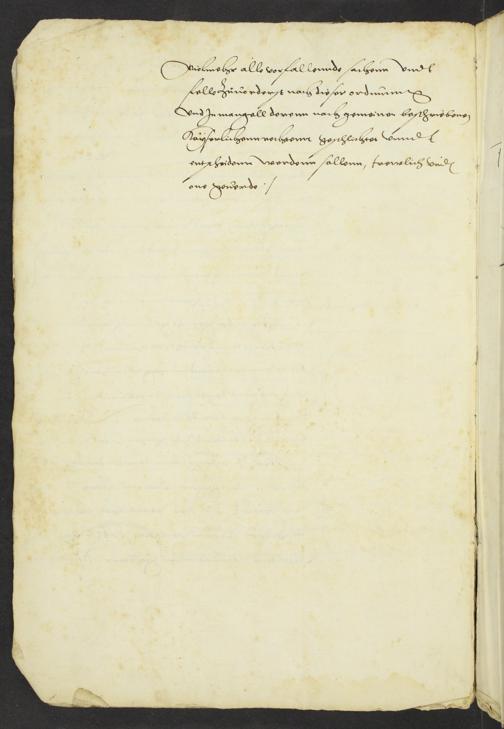 vielmehr alle vorfallennde sachenn unnd
felle Zuvorderst nach dieser ordnung
und In mangell derenn nach gemeinen beschriebenen
Kayserlichenn rechtenn geschlichtet unnd
entscheidenn werdenn sollenn, trewlich und
one geverde :/